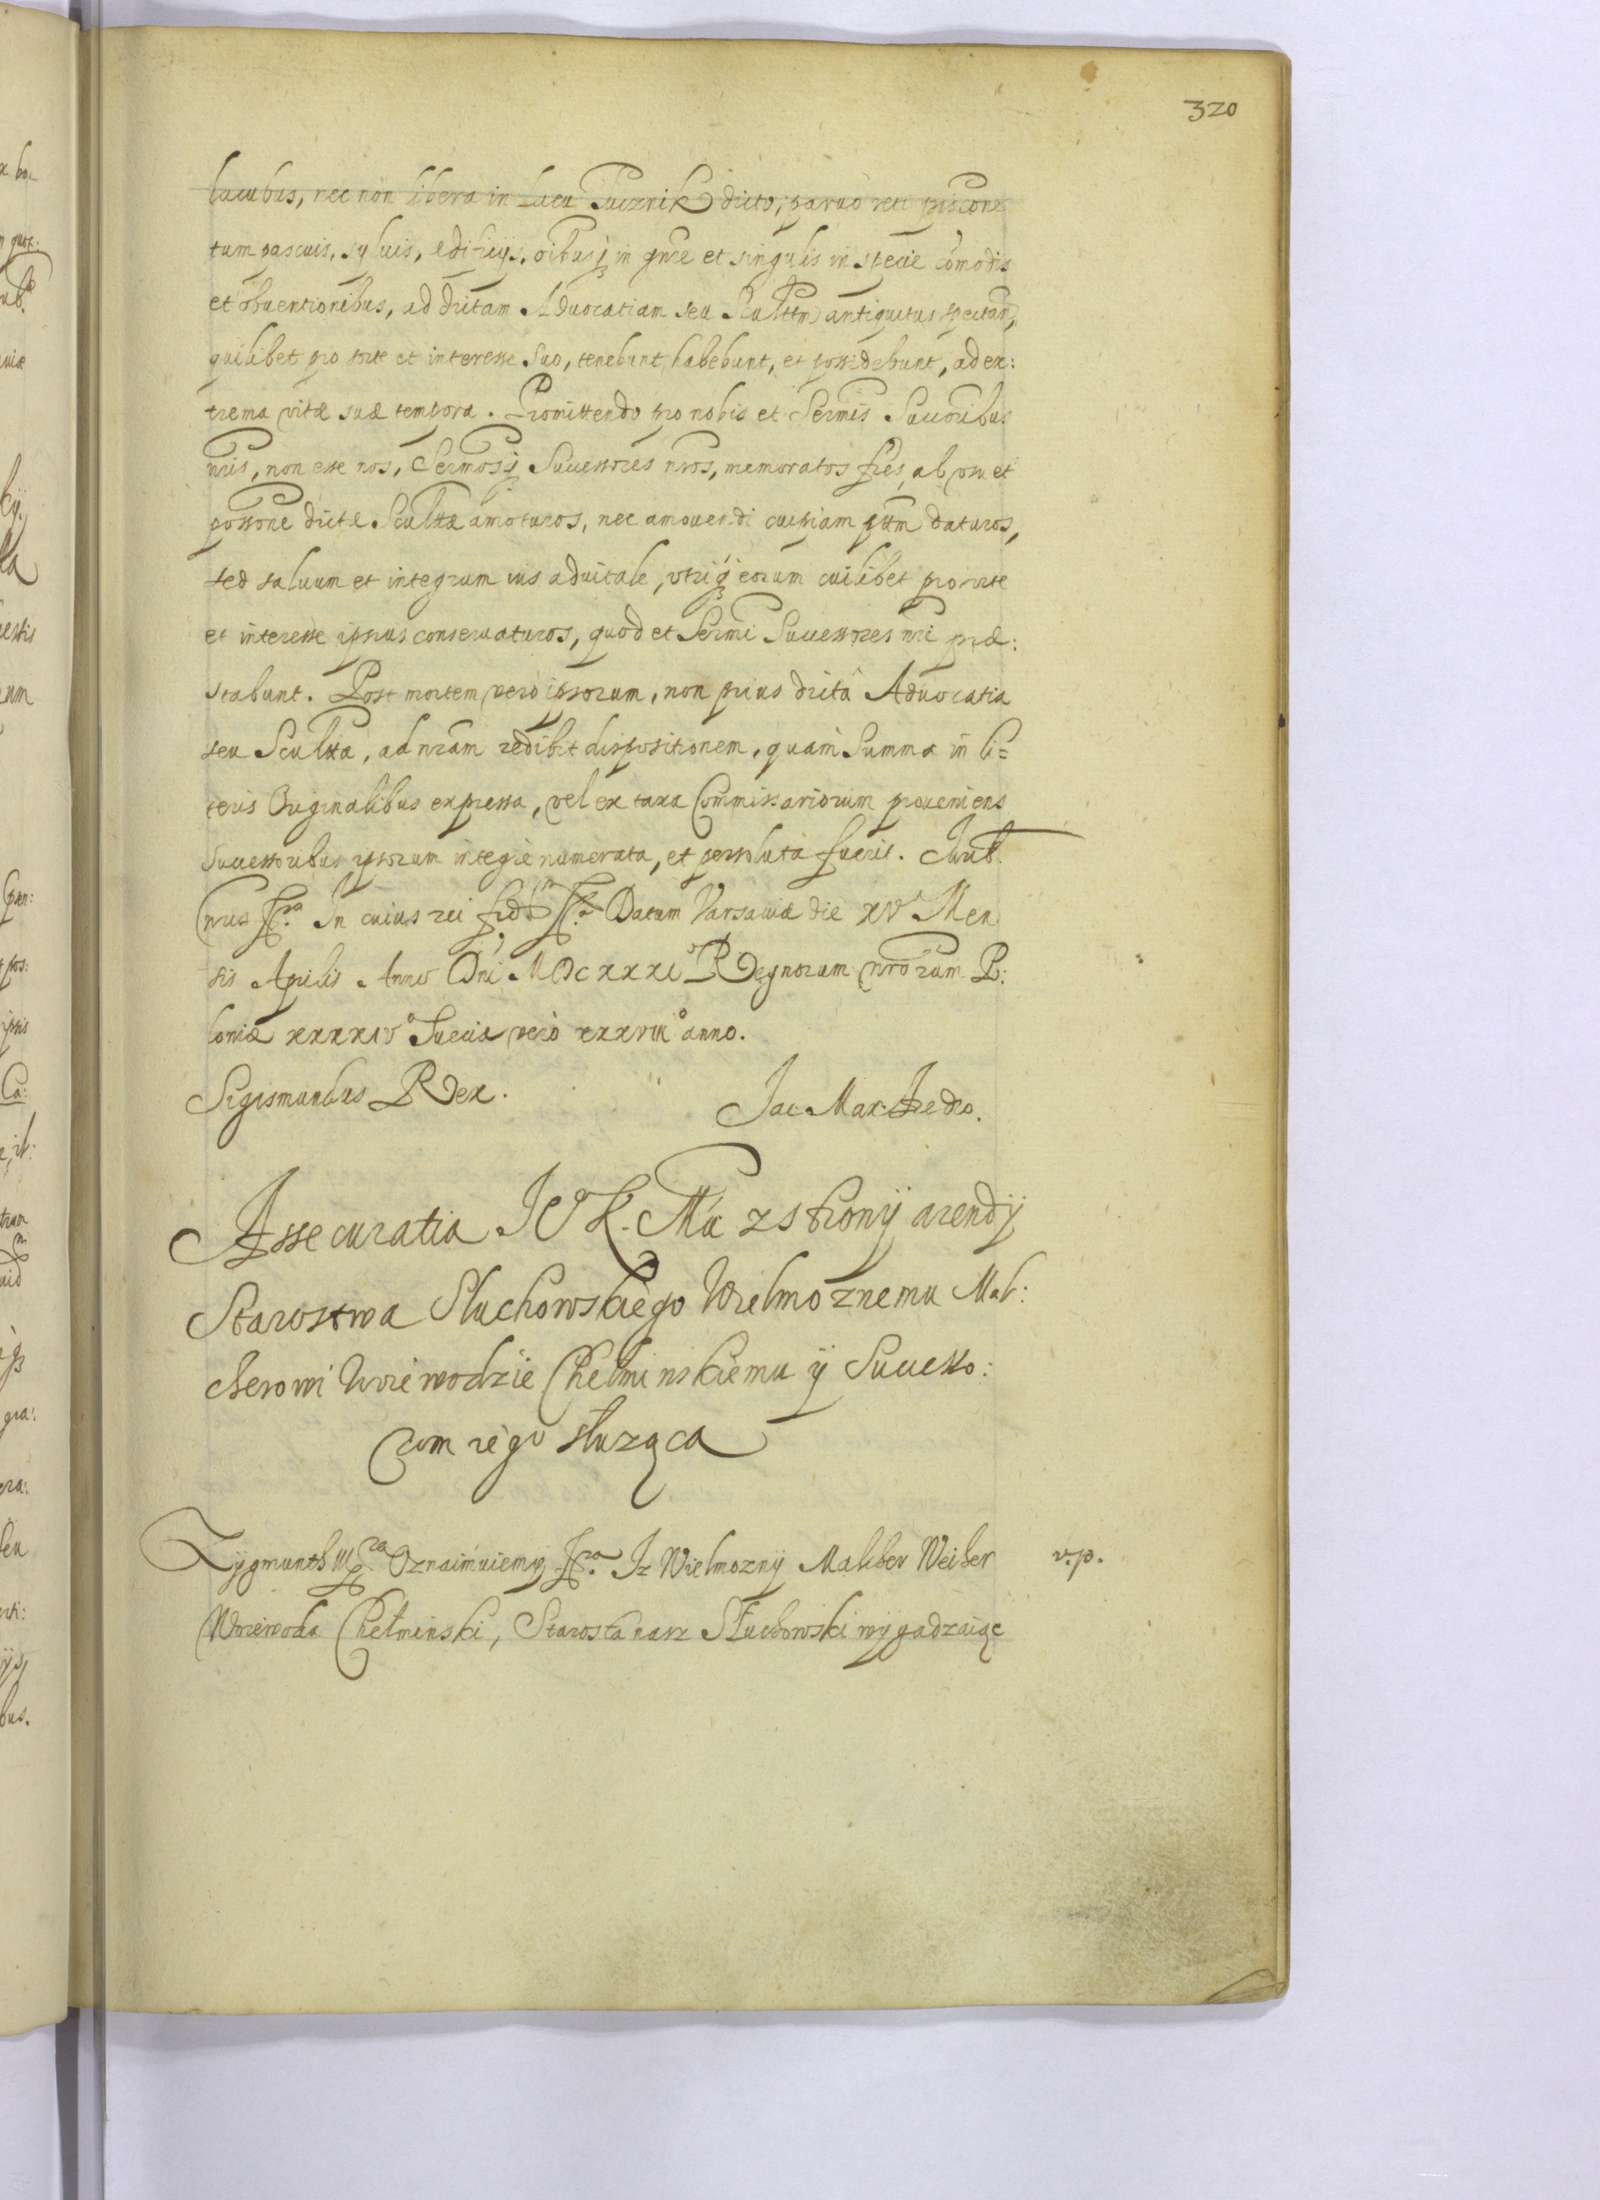 320
lacubus, nec non libera in Lacu Tucznik dicto, paruo reti piscone
tum pascuis, syluis, edificijs, oibusq in gnre et singulis in specie comodis
et obuentionibus, ad dictam Aduocatiam seu Scultm antiquitus spectan,
quilibet pro sorte et interesse suo, tenebunt, habebunt, et possidebunt, ad ex:
trema vitæ suæ tempora. Promittendo pro nobis et Sermis Succoribus
nris, non esse nos, Sermosq Successores nros, memoratos fres, ab vsu et
possone dictæ Scultæ amoturos, nec amouendi cuipiam ptm daturos,
sed saluum et integrum ius aduitale, vtriq eorum cuilibet pro sorte
et interesse ipsius conseruaturos, quod et Sermi Successores nri præ:
stabunt. Post mortem vero ipsorum, non prius dicta Aduocatia
seu Scultta, ad nram redibit dispositionem, quam Summa in li=
teris Originalibus expressa, vel ex taxa Commissariorum proueniens
Successoribus ipsorum integre numerata, et persoluta fuerit. Iurib.
nris In cuius rei fid Datum Varsauiæ die XV Men
sis Aprilis Anno Dni MDCXXXI Regnorum nrorum Po:
loniæ XXXXIV Sueciæ vero XXXVIII anno.
Sigismundus Rex. Jac: Max: Fredro.
Assecuratia J K. Mći z strony arendy
Starostwa Sluchowskiego Wielmoznemu Mel:
cherowi Woiewodzie Chelminskiemu ÿ Successo:
rom iego słuząca
Zygmunth III Oznaimuiemy Iz Wielmozny Malcher Weiher
Woiewoda Chełminski, Starosta nasz Słuchowski wygadzaiąc
v.p.